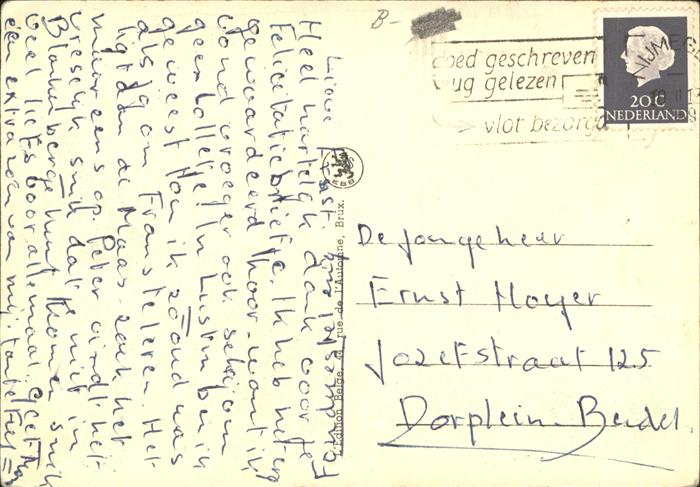 B-
goed geschreven
vlug gelezen
vlot bezorgd
NIJMEG
20 C
NEDERLAND
Lieve Ernst,
Heel hartelijk dank voor je
felicitatiebriefje. Ik heb het erg
gewaardeerd hoor - want ik
vond vroeger ook schrijven
geen lolletje! In Lustin ben ik
geweest toen ik zó oud was
als jij om Frans te leren. Het
ligt aan de Maas - zoek het
maar eens op. Peter vindt het
vreselijk sneu dat je niet in
Blankenberge kunt komen
veel liefs voor allemaal
een extra zoen van mij, tante
L'Edition Belge, rue de l'Automne, Brux.
De jongeheer
Ernst Hoyer
Jozefstraat 125
Dorplein-Budel.